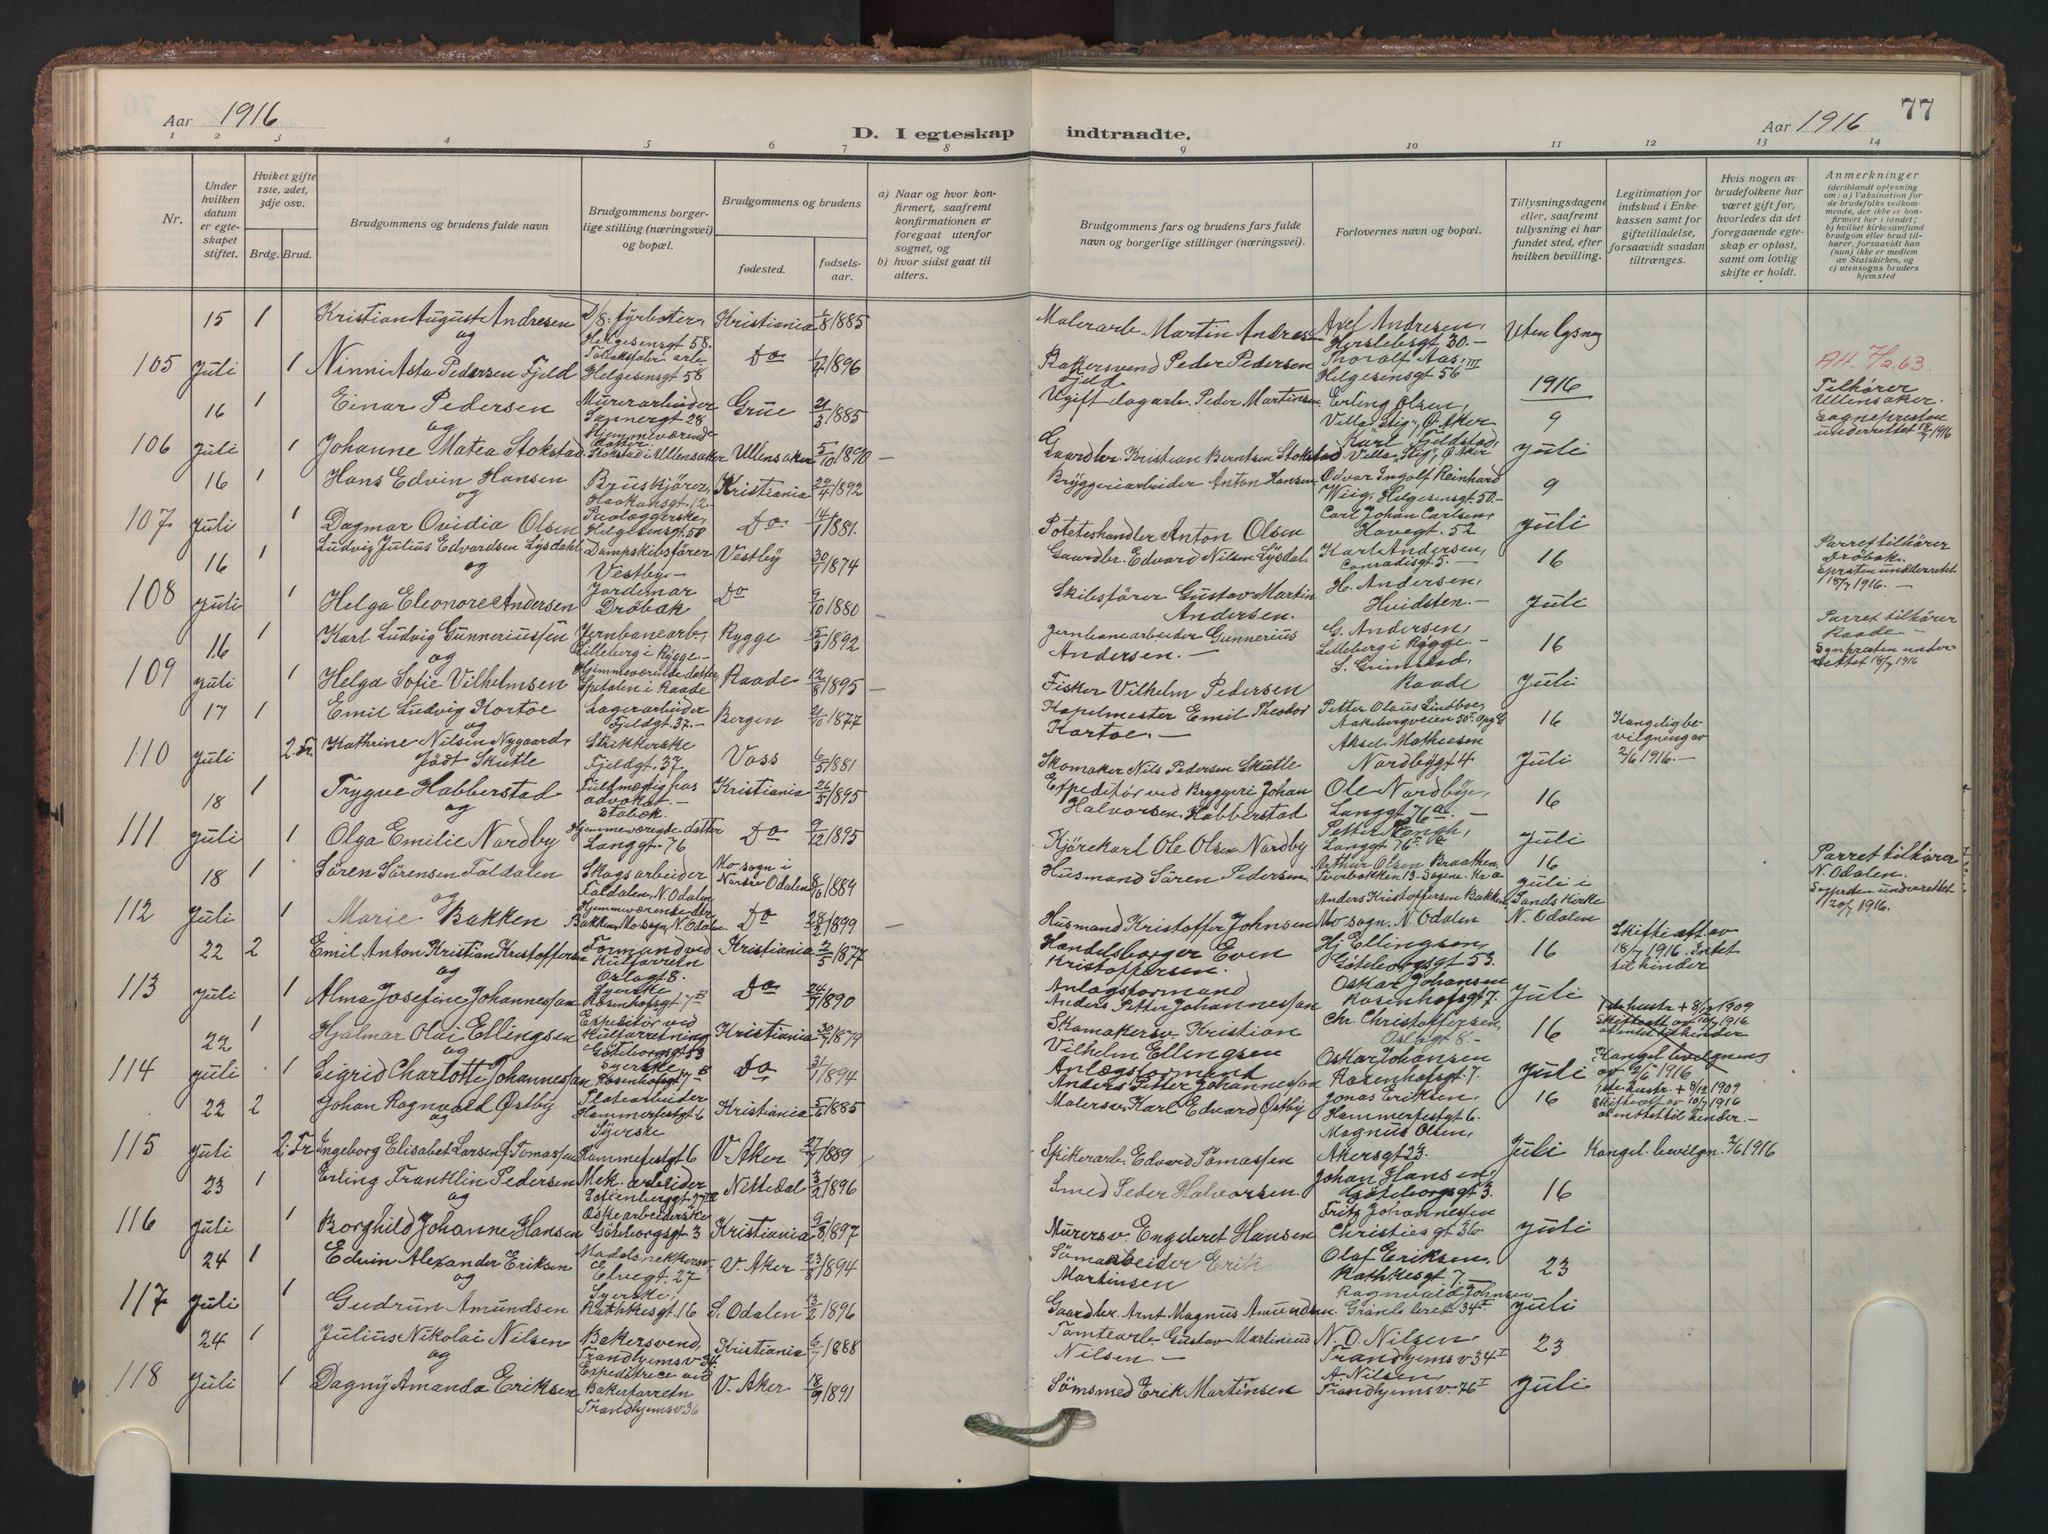 Aar 1916
D. I egteskap indtraadte.
Aar 1916
77
1 2 3 4 5 6 7 8 9 10 11 12 13 14
Nr.
Under hvilken datum er egteskapet stiftet.
Hviket gifte 1ste, 2det, 3dje osv.
Brdg. Brud.
Brudgommens og brudens fulde navn
Brudgommens borgerlige stilling (næringsvei) og bopæl.
Brudgommens og brudens
fødested.
fødselsaar.
a) Naar og hvor konfirmert, saafremt konfirmationen er foregaat utenfor sognet, og
b) hvor sidst gaat til alters.
Brudgommens fars og brudens fars fulde navn og borgerlige stillinger (næringsvei).
Forlovernes navn og bopæl.
Tillysningsdagene eller, saafremt tillysning ei har fundet sted, efter hvilken bevilling.
Legitimation for indskud i Enkekassen samt for giftetilladelse, forsaavidt saadan tiltrænges.
Hvis nogen av brudefolkene har været gift før, hvorledes da det foregaaende egteskap er opløst, samt om lovlig skifte er holdt.
Anmerkninger
(deriblandt oplysning om: a) Vaksination for de brudefolks vedkommende, der ikke er konfirmert her i landet; b) hvilket kirkesamfund brudgom eller brud tilhører, forsaavidt han (hun) ikke er medlem av Statskirken, og c) utensogns bruders hjemsted
15 1 Kristian August Andresen D/S. fyrbøter, Helgesensgt 58. Kristiania 1/8 1885 Malerarb. Martin Andresen Axel Andresen, Herslebsgt 30.- Uten lysning
og
105 Juli 1 Ninni Asta Pedersen Fjeld Helgesensgt 58 Do 1896 Bakersvend Peder Pedersen Fjeld Thoralf Aas, Helgesensgt 56 III
16 1 Einar Pedersen Murerarbeider Sannergt 28 Grue 21/3 1885 Ugift dagarb. Peder Martinsen. Erling Olsen, Villa "Stig", Ø. Aker 1916 9 Tilhører Ullensaker. Sognepresten underrettet 18/7 1916
og
106 Juli 1 Johanne Matea Stokstad Hjemmeværende datter Stokstad i Ullensaker Ullensaker 5/10 1890 Gaardbr. Kristian Berntsen Stokstad Karl Fjeldstad, Villa "Stig", Ø. Aker Juli
16 1 Hans Edvin Hansen Bruskjører, Haakonsgt. 12. Kristiania 22/4 1892 Bryggeriarbeider Anton Hansen Odvar Ingolf Reinhard Wiig, Helgesensgt 50.- 9
og
107 Juli 1 Dagmar Ovidia Olsen Helgesensgt 58 Do 14/1 1881. Poteteshandler Anton Olsen Carl Johan Carlsen, Havegt. 52 Juli
16 1 Ludvig Julius Edvardsen Lysdahl Dampskibsfører Vestby.- Vestby 30/1 1874 Gaardbr. Edvard Nilsen Lysdal Karl Andersen, Conradisgt 5.- 16 Parret tilhører Drøbak. Sprsten underrettet 18/7 1916.-
og
108 Juli 1 Helga Eleonore Andersen Jordemor Drøbak Do 9/10 1880 Skibsfører Gustav Martin Andersen. H. Andersen, Hvidsten.- Juli
16 1 Karl Ludvig Gunneriussen Jernbanearb., Lilleberg i Rygge.- Rygge 15/3 1892 Jernbanearbeider Gunnerius Andersen.- G. Andersen, Lilleberg i Rygge.- 16 Parret tilhører Raade - Sgnpresten underrettet 18/7 1916
og
109 Juli 1 Helga Sofie Vilhelmsen Hjemmeværende datter, Spetalen i Raade Raade 12/8 1895 Fisker Vilhelm Pedersen S. Grimstad, Raade Juli
17 1 Emil Ludvig Kortoe Lagerarbeider Fjeldgt. 37.- Bergen 1877 Kapelmester Emil Theodor Kortoe.- Petter Olaus Lindboe, Aakebergveien 50 16 Kongelig bevilgning av 2/6 1916.-
og
110 Juli 2. Fr. Kathrine Nilsen Nygaard, født Skutle Strikkerske Fjeldgt. 37 Voss 6/5 1881 Skomaker Nils Pedersen Skutle Aksel Mathiesen Nordbygt 4 Juli
18 1 Trygve Habberstad Fuldmægtig hos advokat.- Stabæk. Kristiania 26/5 1895 Expeditør ved Bryggeri Johan Halvorsen Habberstad Ole Nordbye, Langgt 76 a.- 16
og
111 Juli 1 Olga Emilie Nordby Hjemmeværende datter Langgt. 76 Do 9/12 1895 Kjørekarl Ole Olsen Nordby Petter Langgt 76 Juli
18 1 Søren Sørensen Faldalen Skogsarbeider Faldalen, N. Odalen Mo sogn i Nordre Odalen 8/10 1889 Husmand Søren Pedersen Arthur Olsen Braathen, Tverbakken 13 - Sagene. 16 Juli i Parret tilhører N. Odalen. Sgnprsten underrettet 20/7 1916.
og
112 Juli 1 Marie Bakken Hjemmeværende dtr Bakken, Mo sogn, N. Odalen Do 28/2 1899 Husmand Kristoffer Johnsen Anders Kristoffersen Bakken Mo sogn, N. Odalen Sands Kirke N. Odalen
22 2 Emil Anton Kristian Kristoffersen Formand ved Kulforretn Oslogt 8. Kristiania 2/5 1877 Handelsborger Even Kristoffersen. Hj. Ellingsen, Göteborgsgt 53. 16 Skifteatt av 18/7 1916. Intet til hinder
og
113 Juli 1 Alma Josefine Johannessen Syerske Rosenhofsgt 7 B Do 24/9 1890 Anlægsformand Anders Petter Johannessen Oskar Johansen Rosenhofsgt 7. Juli
22 1 Hjalmar Olai Ellingsen Expeditør ved Kulforretning Göteborgsgt 53 Kristiania 30/7 1879 Skomakersv. Kristian Vilhelm Ellingsen Chr. Christoffersen, Oslogt 8.- 16
og
114 Juli 1 Sigrid Charlotte Johannessen Syerske Rosenhofsgt 7 B Do 3/1 1894 Anlægsformand Anders Petter Johannessen Oskar Johansen Rosenhofsgt 7. Juli Kongel. bevilgning av 2/6 1916
22 2 Johan Ragnvald Østby Platearbeider Hammerfestgt 6 Kristiania 5/6 1885 Malersv. Karl Edvard Østby Jonas Eriksen, Hammerfestgt 6. 16 1ste hustr. + 8/12 1909 Skifteatt av 10/7 1916 om intet til hinder.-
og
115 Juli 2. Fr Ingeborg Elisabet Larsen f. Tomassen Syerske Hammerfestgt 6 V. Aker 27/7 1889 Spikerarb. Edvard Tomassen Magnus Olsen, Akersgt 23. Juli Kongel. bevilgn. 2/6 1916
23 1 Erling Franklin Pedersen Mek. arbeider Sofienberggt. Nittedal 3/2 1896 Smed Peder Halvorsen. Johan Hansen Göteborgsgt 3. 16
og
116 Juli 1 Borghild Johanne Hansen Eskearbeiderske Göteborgsgt 3 Kristiania 9/8 1897 Murersv. Engebret Hansen Fritz Johannessen Christiesgt 36 Juli
24 1 Edvin Alexander Eriksen Modelsnekkersv. Elvegt. 27 V. Aker 23/8 1894 Sømarbeider Erik Martinsen Olaf Eriksen, Rathkesgt 7. 23
og
117 Juli 1 Gudrun Amundsen Syerske, Rathkesgt 16 S. Odalen 13/2 1896 Gaardbr. Arnt Magnus Amundsen. Ragnvald Johnsen Grønlsleret 34 I Juli
24 1 Julius Nikolai Nilsen Bakersvend, Trondhjemsv 34. Kristiania 6/7 1888 Tomtearb. Gustav Martinius Nilsen.- N. O. Nilsen, Trondhjemsv 34 I 23
og
118 Juli 1 Dagny Amanda Eriksen Expeditrice ved Bakerforretn Trondhjemsv 36 V. Aker 18/9 1891 Sømsmed Erik Martinsen A Nilsen, Trondhjemsv 76 I Juli